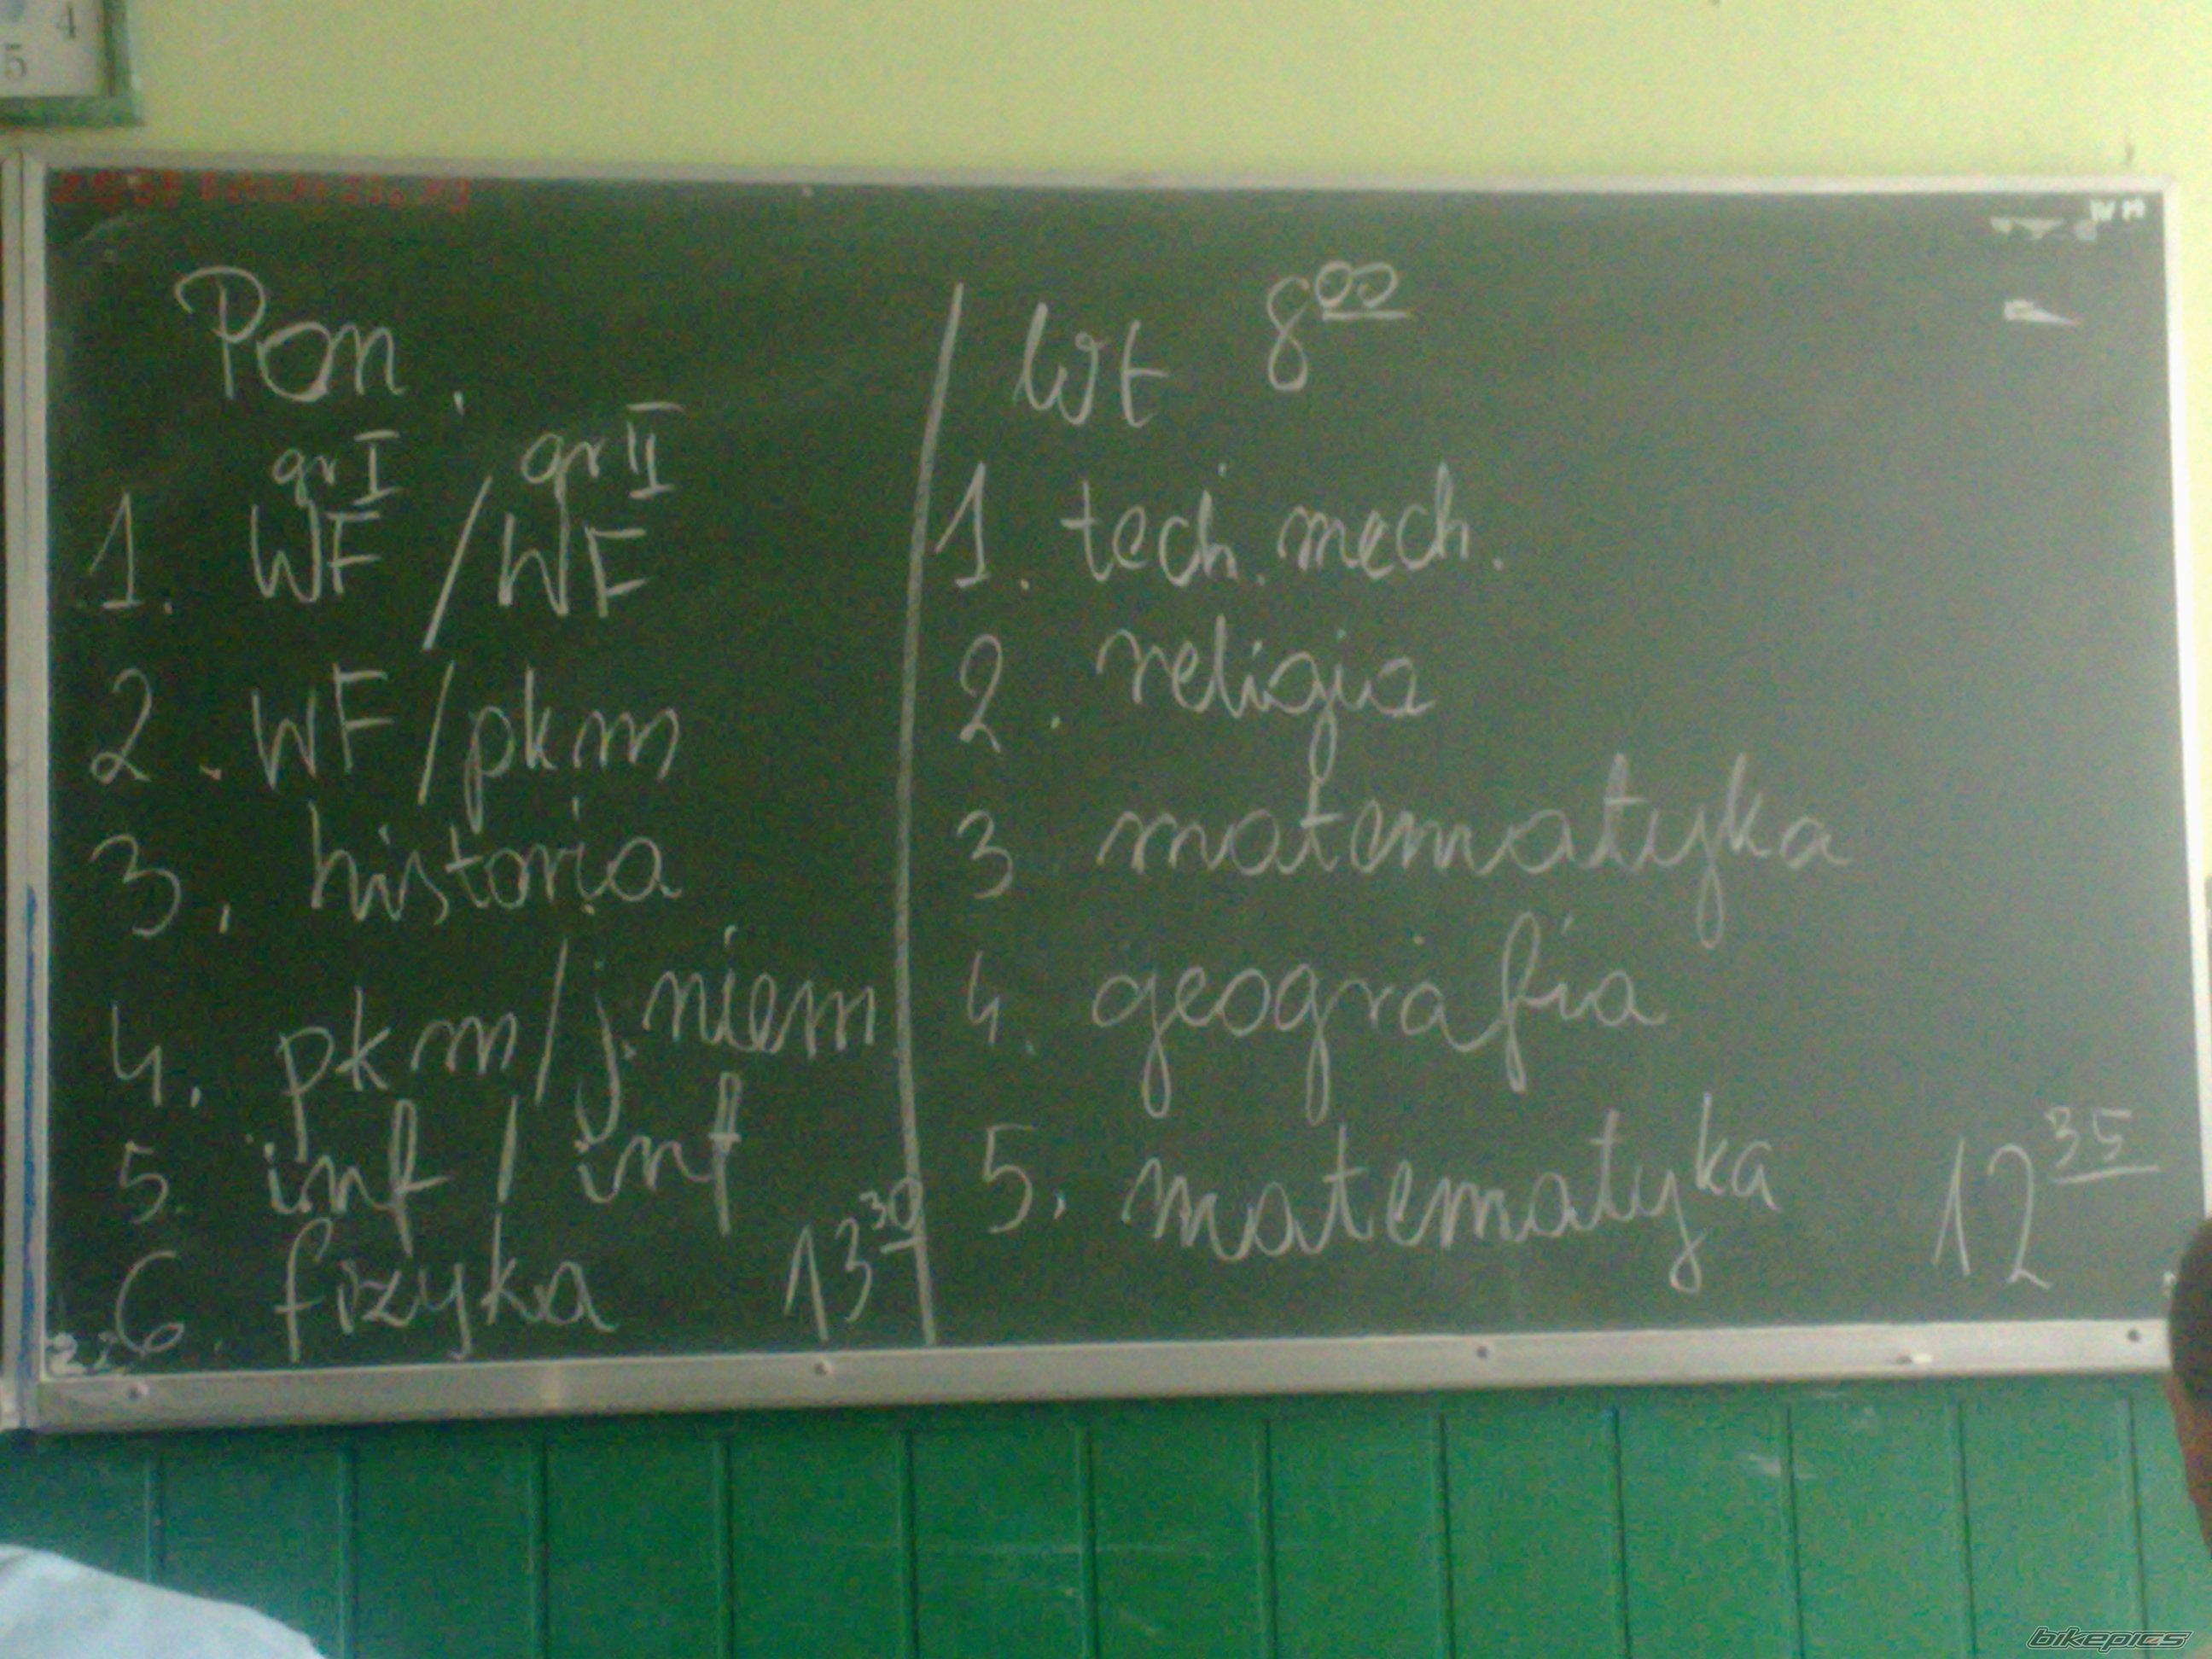 4
5
Pon.
gr I gr II
1. WF / WF
2. WF / pkm
3. historia
4. pkm / j. niem
5. inf / inf
6. fizyka 13 30
Wt 8 00
1. tech. mech.
2. religia
3 matematyka
4. geografia
5. matematyka 12 35
bikepics